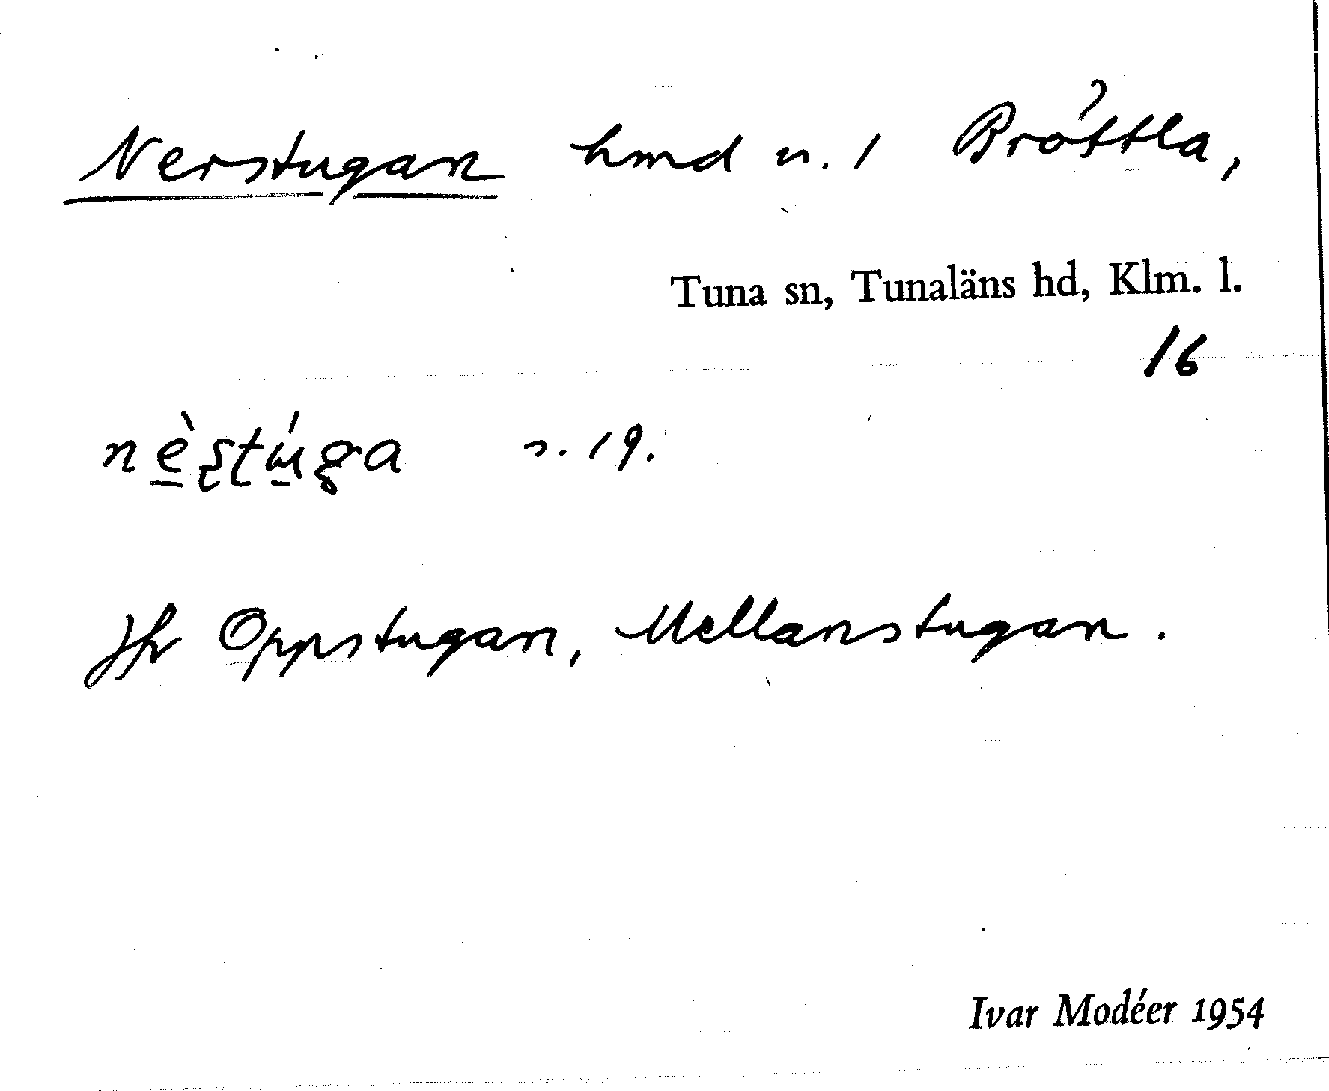 Nerstugan hmd n. 1 Bröttla,
Tuna sn, Tunaläns hd, Klm. l.
16
s. 19.
Jfr Oppstugan, Mellanstugan.
Ivar Modéer 1954